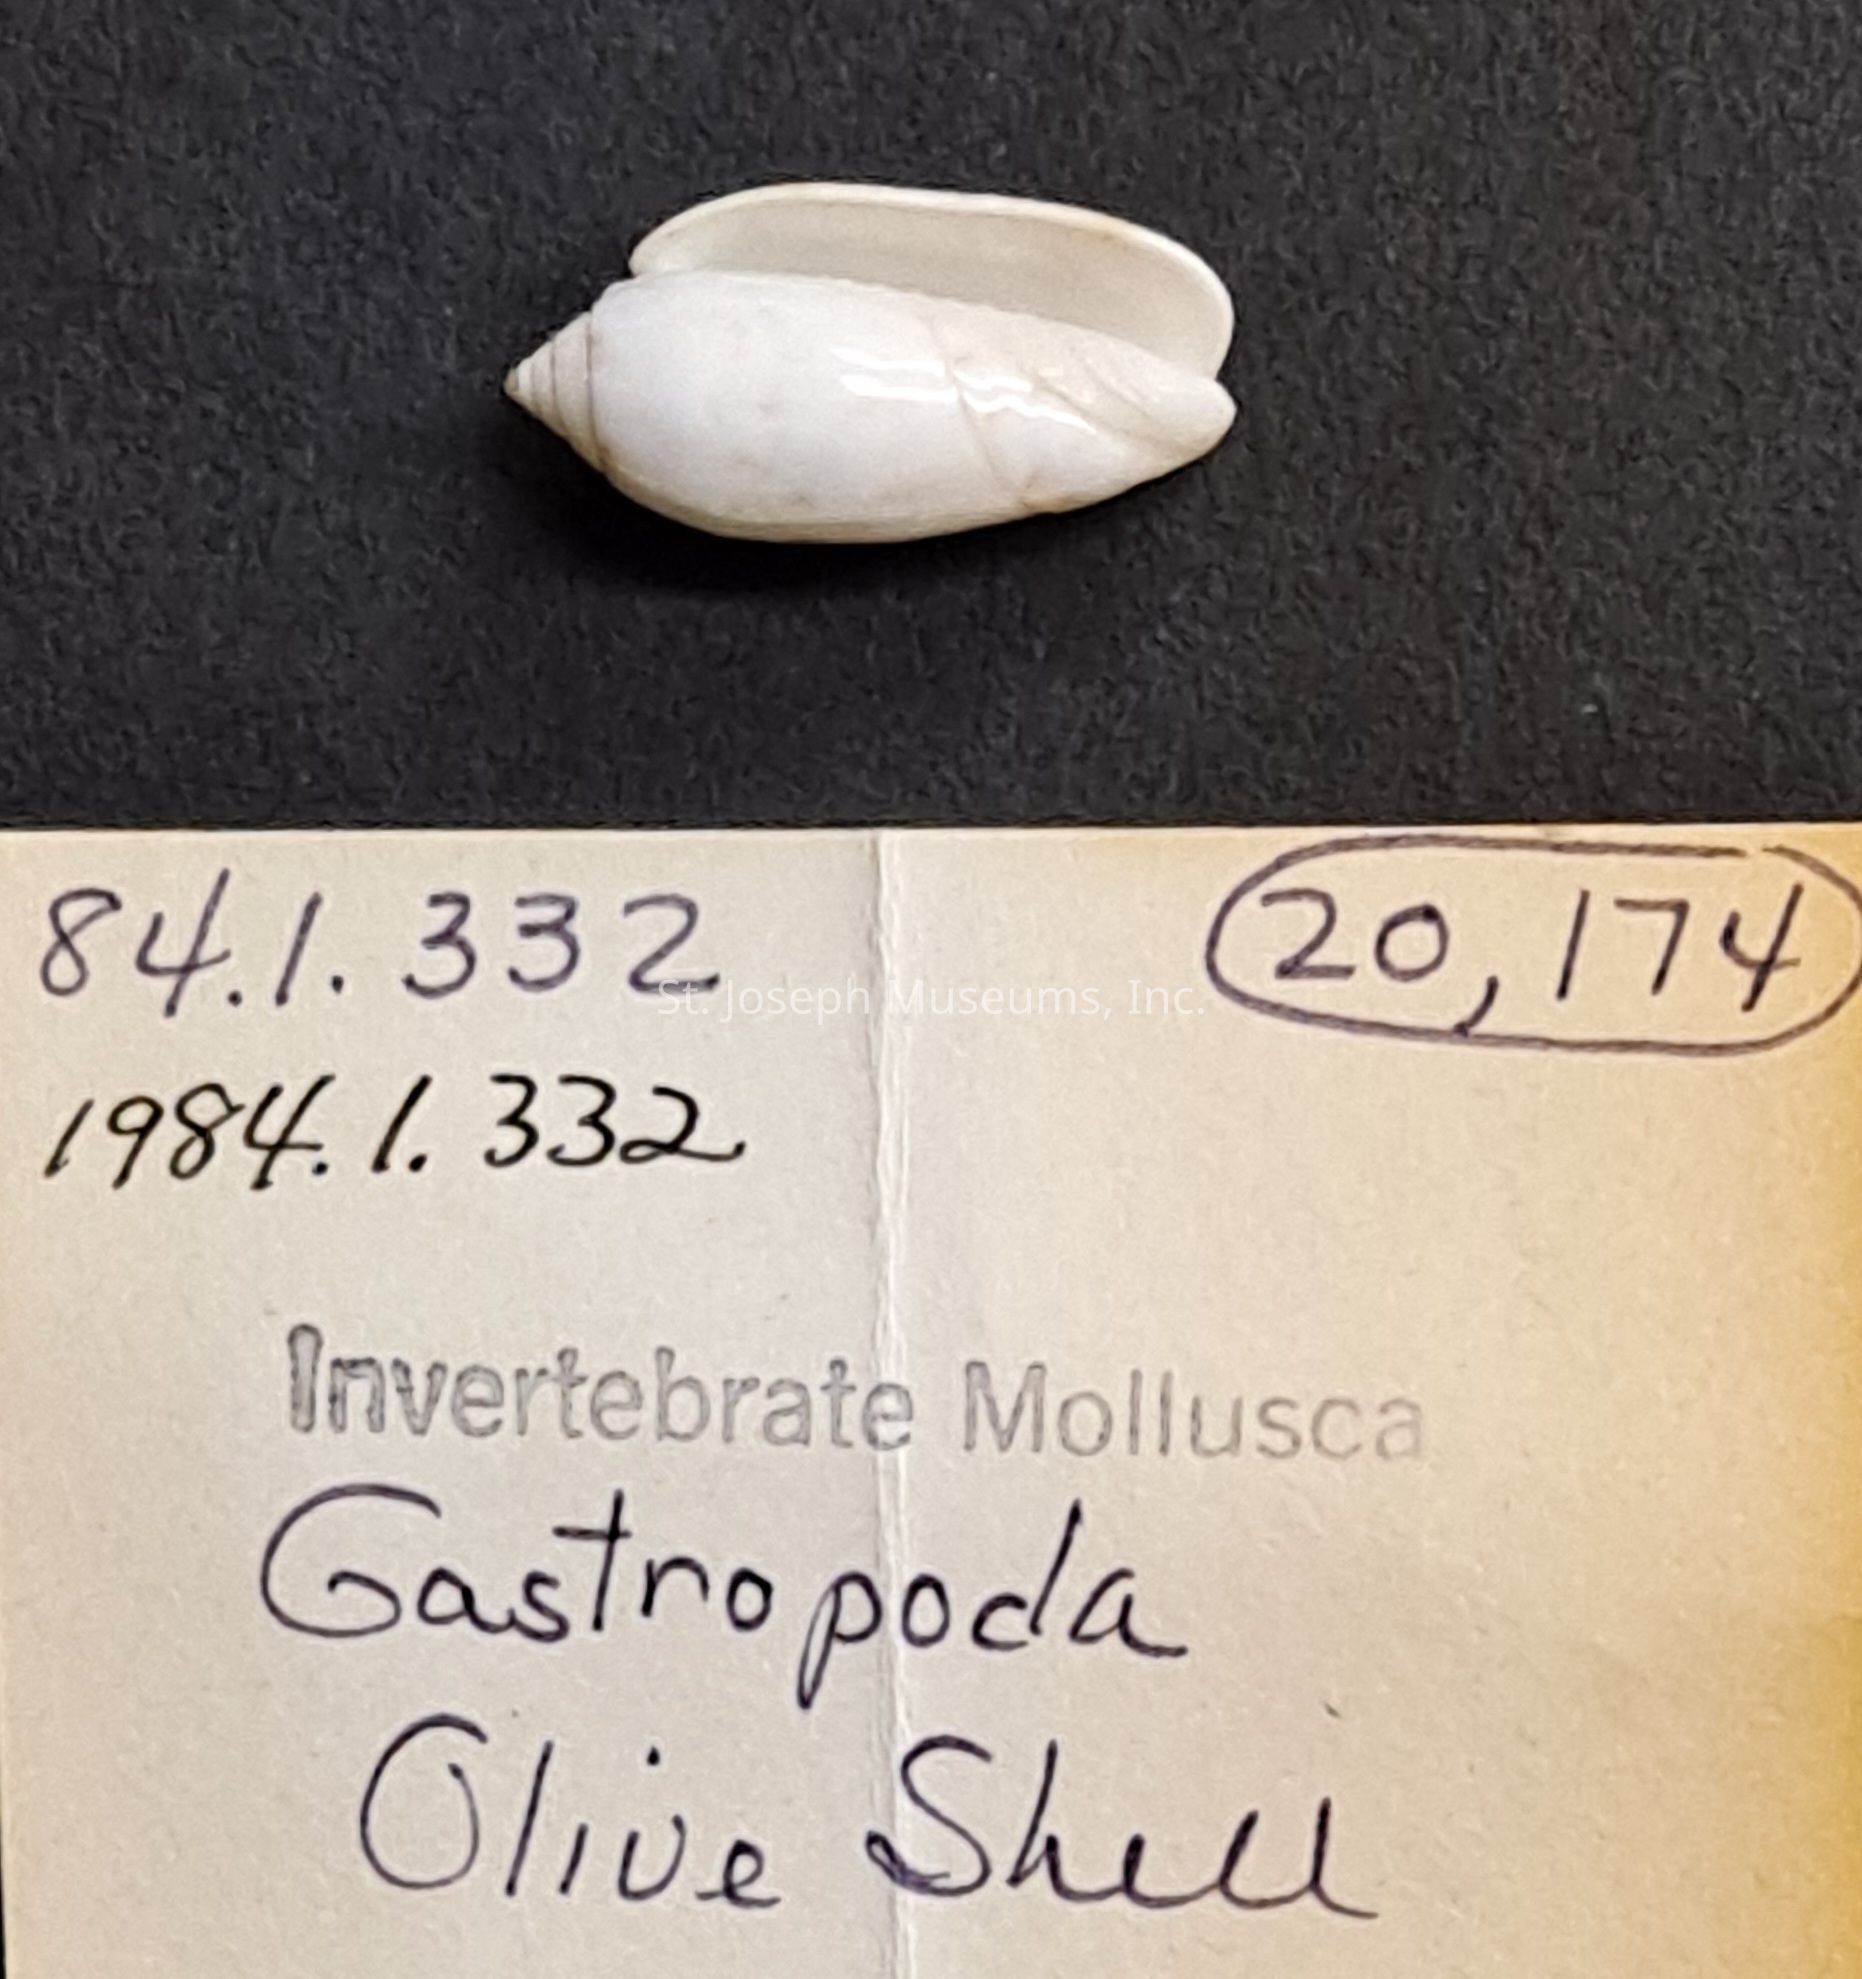 84.1.332
20,174
St. Joseph Museums, Inc.
1984.1.332
Invertebrate Mollusca
Gastropoda
Olive Shell